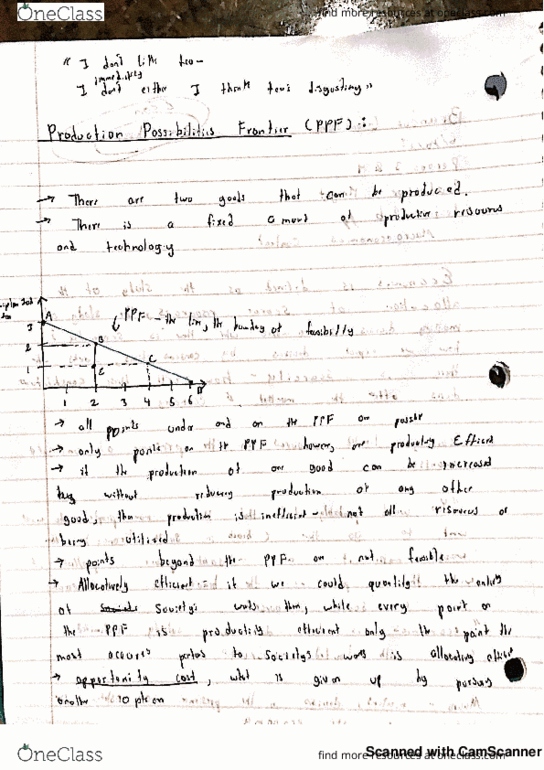 OneClass
find more resources at oneclass.com
" I don't like
immediately
I don't either I think disgusting "
Production Possibilities Frontier (PPF) :
→ There are two goods that can be produced.
→ There is a fixed amount of productive resources
and technology
PPF - the line, the boundary of feasibility
3 A
2 B
1 E C
1 2 3 4 5 6
→ all points under and on the PPF are possible
→ only points on the PPF however, are productivly Efficient
→ if the production of one good can be increased
without reducing production of any other
good, then production is inefficient - not all resources are
being utilized
→ points beyond the PPF are not feasible
→ Allocatively efficient : if we could quantify the
of society's wants then, while every point on
the PPF is productivly efficient only the point that
most to societys wants is allocativly
→ opportunity cost, what is given up by pursuing
another option
OneClass
find more resources at oneclass.com
Scanned with CamScanner